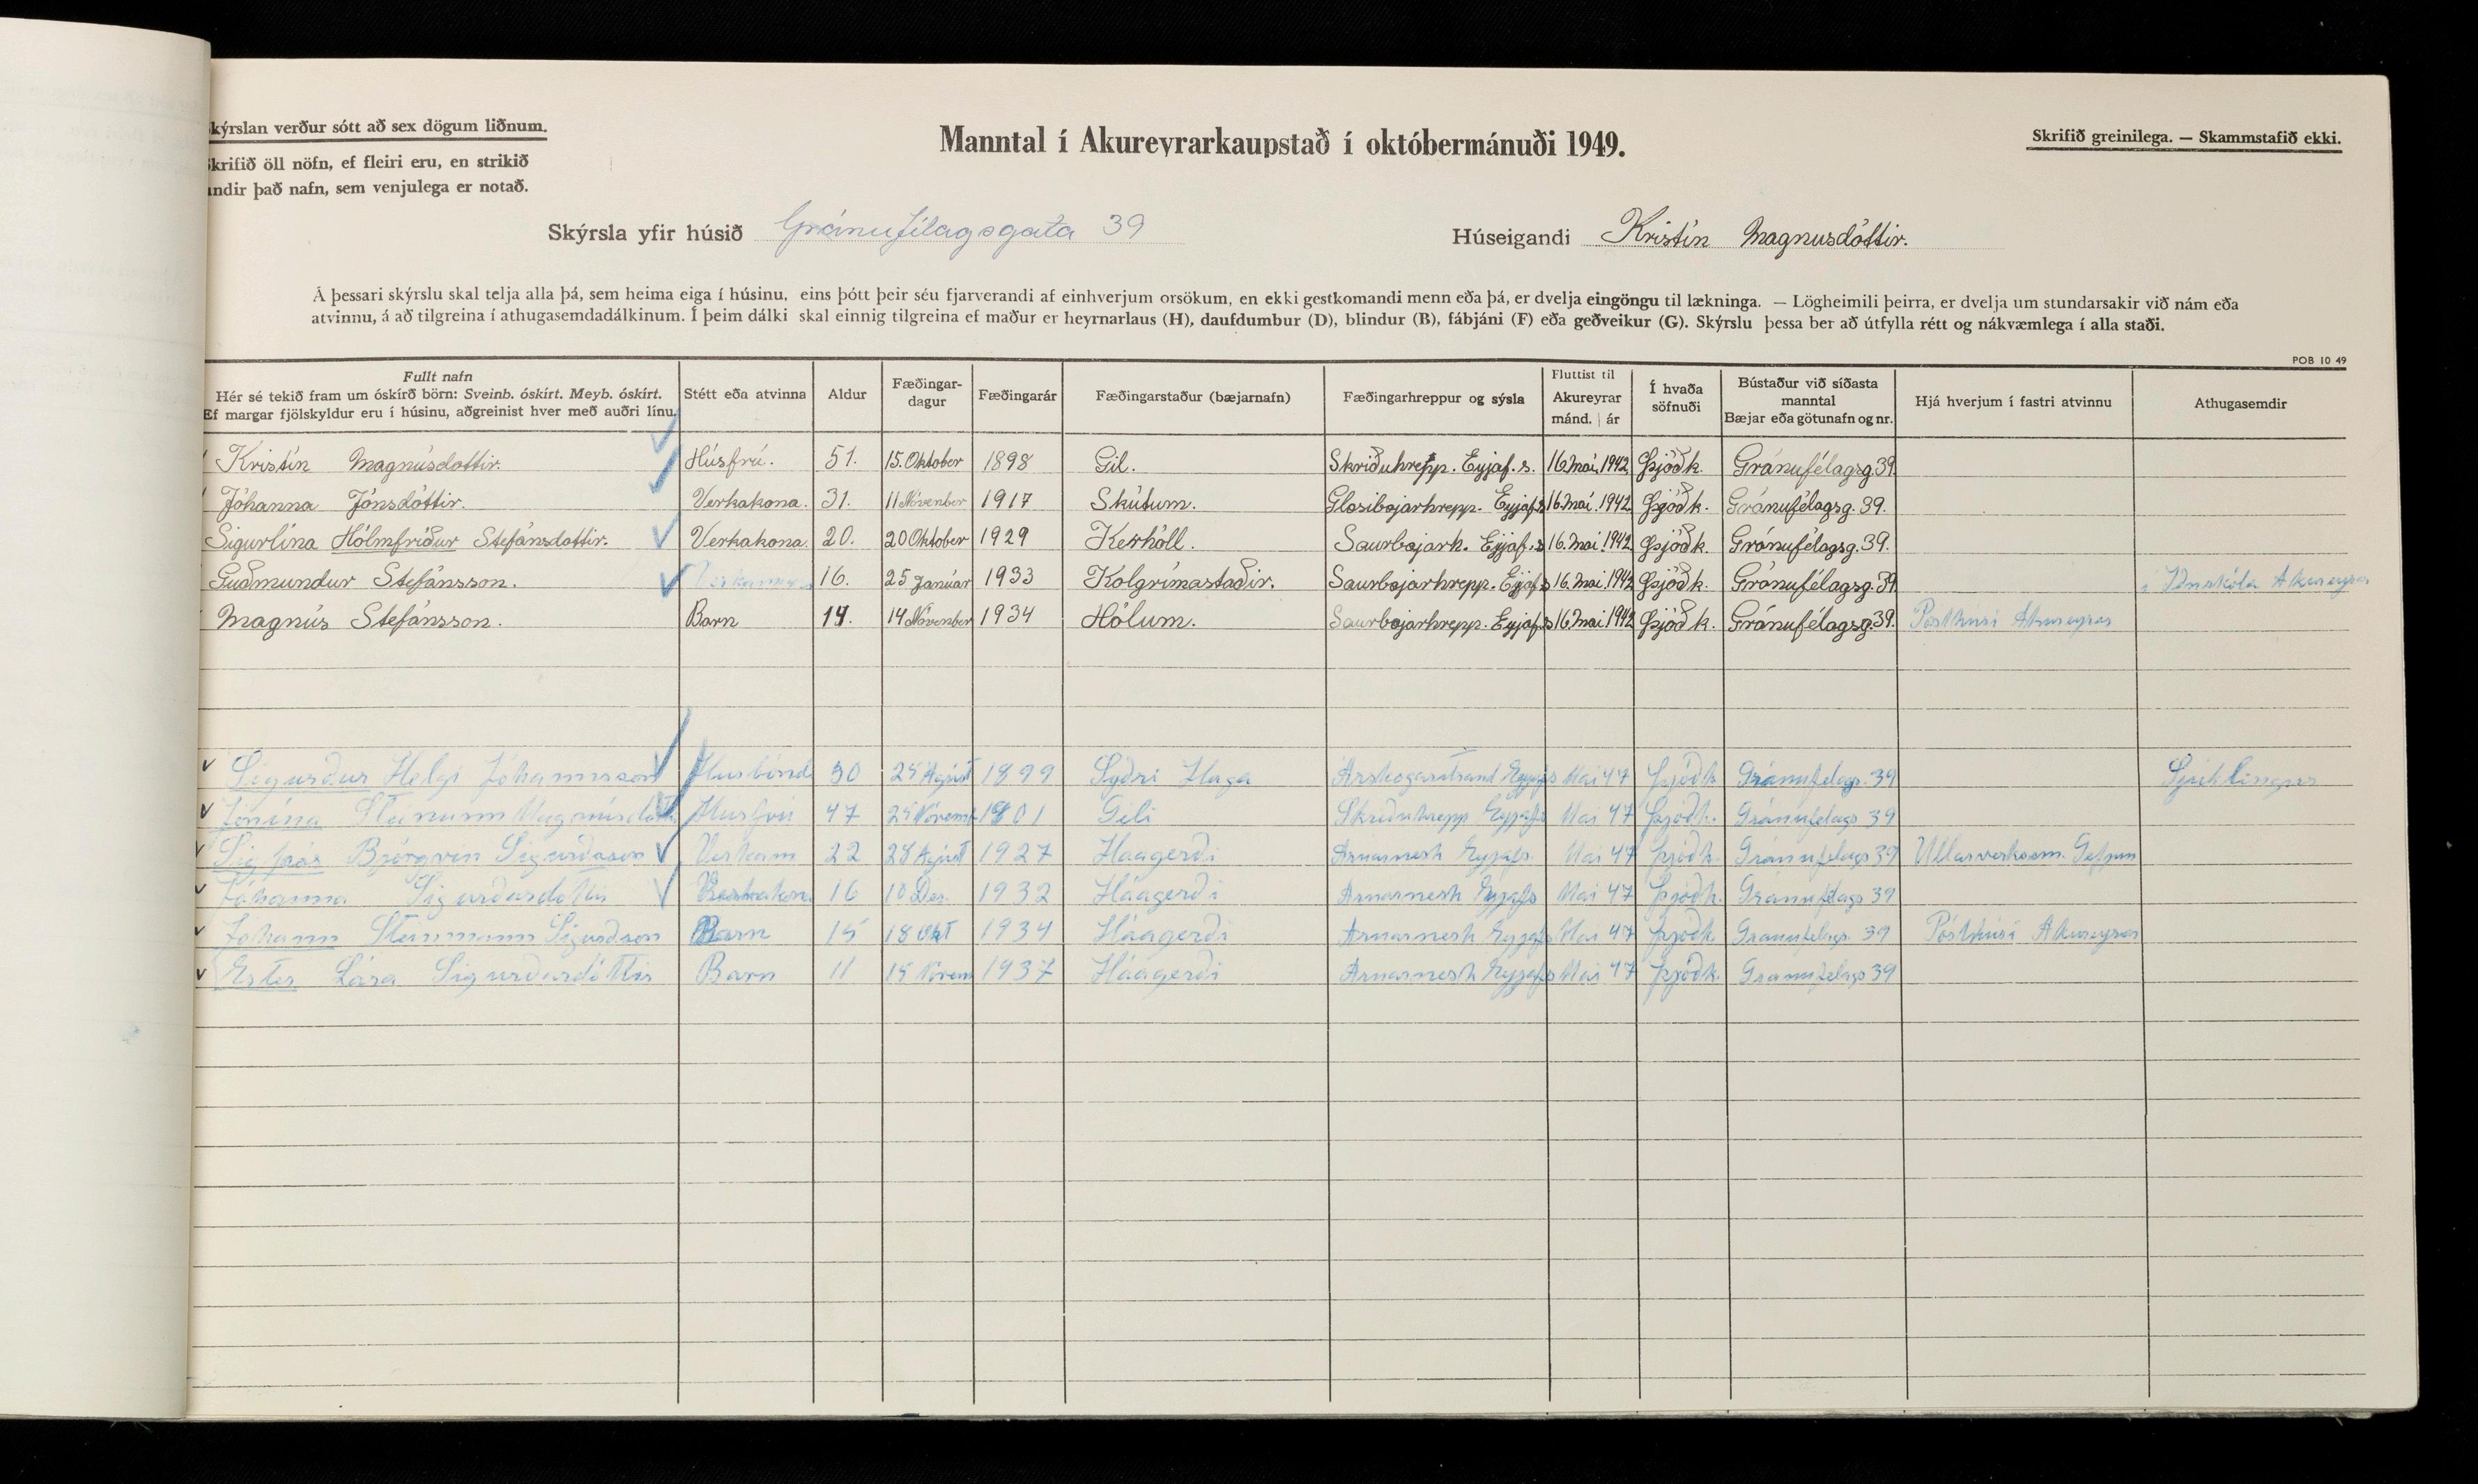 Skýrslan verður sótt að sex dögum liðnum.
Skrifið öll nöfn, ef fleiri eru, en strikið
undir það nafn, sem venjulega er notað.
Manntal í Akureyrarkaupstað í októbermánuði 1949.
Skrifið greinilega. — Skammstafið ekki.
Skýrsla yfir húsið Gránufélagsgata 39
Húseigandi Kristín Magnusdóttir.
Á þessari skýrslu skal telja alla þá, sem heima eiga í húsinu, eins þótt þeir séu fjarverandi af einhverjum orsökum, en ekki gestkomandi menn eða þá, er dvelja eingöngu til lækninga. — Lögheimili þeirra, er dvelja um stundarsakir við nám eða
atvinnu, á að tilgreina í athugasemdadálkinum. Í þeim dálki skal einnig tilgreina ef maður er heyrnarlaus (H), daufdumbur (D), blindur (B), fábjáni (F) eða geðveikur (G). Skýrslu þessa ber að útfylla rétt og nákvæmlega í alla staði.
POB 10 49
Fullt nafn
Hér sé tekið fram um óskírð börn: Sveinb. óskírt. Meyb. óskírt.
Ef margar fjölskyldur eru í húsinu, aðgreinist hver með auðri línu.
Stétt eða atvinna
Aldur
Fæðingar-
dagur
Fæðingarár
Fæðingarstaður (bæjarnafn)
Fæðingarhreppur og sýsla
Fluttist til
Akureyrar
mánd. | ár
Í hvaða
söfnuði
Bústaður við síðasta
manntal
Bæjar eða götunafn og nr.
Hjá hverjum í fastri atvinnu
Athugasemdir
Kristín Magnúsdottir. Húsfrú. 51. 15. Oktober 1898 Gil. Skriðuhrepp. Eyjaf. s. 16. mai. 1942 Þjóðk. Gránufélagsg. 39.
Jóhanna Jónsdóttir. Verkakona. 31. 11 Nóvember 1917 Skútum. Glæsibæjarhrepp. Eyjaf. s 16. mai. 1942. Þjóðk. Gránufélagsg. 39.
Sigurlína Hólmfríður Stefánsdottir. Verkakona. 20. 20 Oktober 1929 Kerhóll. Saurbæjarh. Eyjaf. s 16. mai 1942 Þjóðk. Gránufélagsg. 39.
Guðmundur Stefánsson. 16. 25 Janúar 1933 Kolgrímastaðir. Saurbæjarhrepp. Eyjaf. s 16. mai. 1942 Þjóðk. Gránufélagsg. 39 í Iðnskóla Akureyrar
Magnús Stefánsson. Barn 14. 14 Nóvember 1934 Hólum. Saurbæjarhrepp. Eyjaf. s 16 mai 1942 Þjóðk. Gránufélagsg. 39. Pósthúsi Akureyrar
Sigurður Helgi Jóhannsson Húsbóndi 50 25 Ágúst 1899 Syðri Haga Árskógarströnd Eyjafs Mai 47 Þjóðk Gránufelags. 39 Sjúklingur
Jónína Steinunn Magnúsdóttir Húsfrú 47 25 Nóvemb 1901 Gili Skriðuhrepp Eyjafs Mai 47 Þjóðk. Gránufelags 39
Sigþór Björgvin Sigurðsson Verkam 22 28 Ágúst 1927 Háagerði Arnarnesh Eyjafs. Mai 47 Þjóðk. Gránufelags 39 Ullarverksm. Gefjun
Jóhanna Sigurðardóttir Verkakona 16 10 Des. 1932 Háagerði Arnarnesh Eyjafs Mai 47 Þjóðk. Gránufelags 39
Jóhann Steinmann Sigurðsson Barn 15 18 Okt 1934 Háagerði Arnarnesh Eyjafs Mai 47 Þjóðk. Gránufelags. 39 Pósthúsi Akureyrar
Ester Lára Sigurðardóttir Barn 11 15 Nóvem 1937 Háagerði Arnarnesh Eyjafs Mai 47 Þjóðk. Gránufelags 39